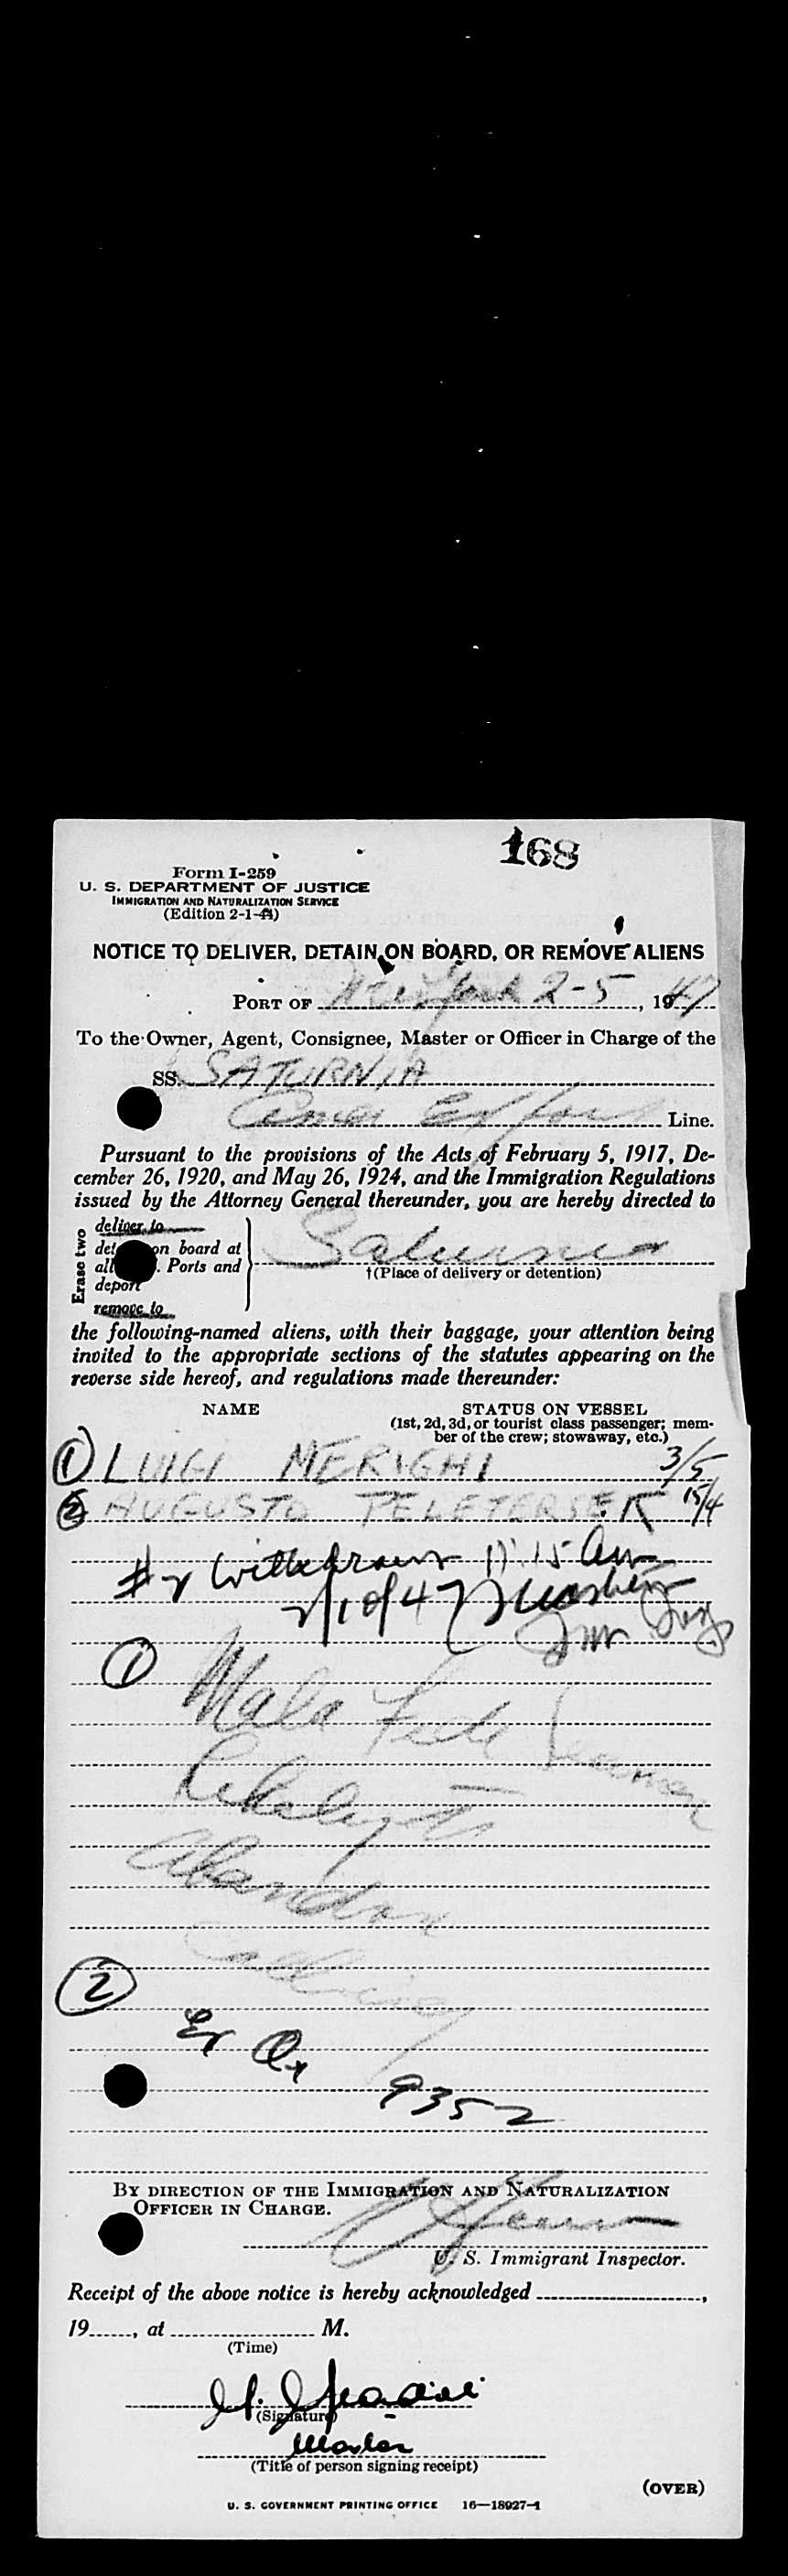 168
Form I-259
U. S. DEPARTMENT OF JUSTICE
IMMIGRATION AND NATURALIZATION SERVICE
(Edition 2-1-44)
NOTICE TO DELIVER, DETAIN ON BOARD, OR REMOVE ALIENS
PORT OF New York 2-5, 1947
To the Owner, Agent, Consignee, Master or Officer in Charge of the
SS. SATURNIA
Amer Export Line.
Pursuant to the provisions of the Acts of February 5, 1917, De-
cember 26, 1920, and May 26, 1924, and the Immigration Regulations
issued by the Attorney General thereunder, you are hereby directed to
Erase two
deliver to
det on board at
all . Ports and
deport
remove to
Saturnia
†(Place of delivery or detention)
the following-named aliens, with their baggage, your attention being
invited to the appropriate sections of the statutes appearing on the
reverse side hereof, and regulations made thereunder:
NAME STATUS ON VESSEL
(1st, 2d, 3d, or tourist class passenger; mem-
ber of the crew; stowaway, etc.)
1 LUIGI MERIGHI 3/5
2 AUGUSTO 15/4
#2 Withdrawn 11:15 am
2/10/47
1 Mala Fide Seaman
Likely to
Abandon
Calling
2
Er Q+
9352
BY DIRECTION OF THE IMMIGRATION AND NATURALIZATION
OFFICER IN CHARGE.
U. S. Immigrant Inspector.
Receipt of the above notice is hereby acknowledged ,
19 , at M.
(Time)
(Signature)
Master
(Title of person signing receipt)
(OVER)
U. S. GOVERNMENT PRINTING OFFICE 16—18927-1